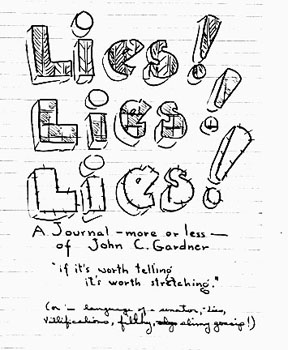 Lies!
Lies!
Lies!
A Journal — more or less —
of John C. Gardner
"if it's worth telling
it's worth stretching."
(or in language of a senator, lies,
villifications, filthy, slimy gossip!)